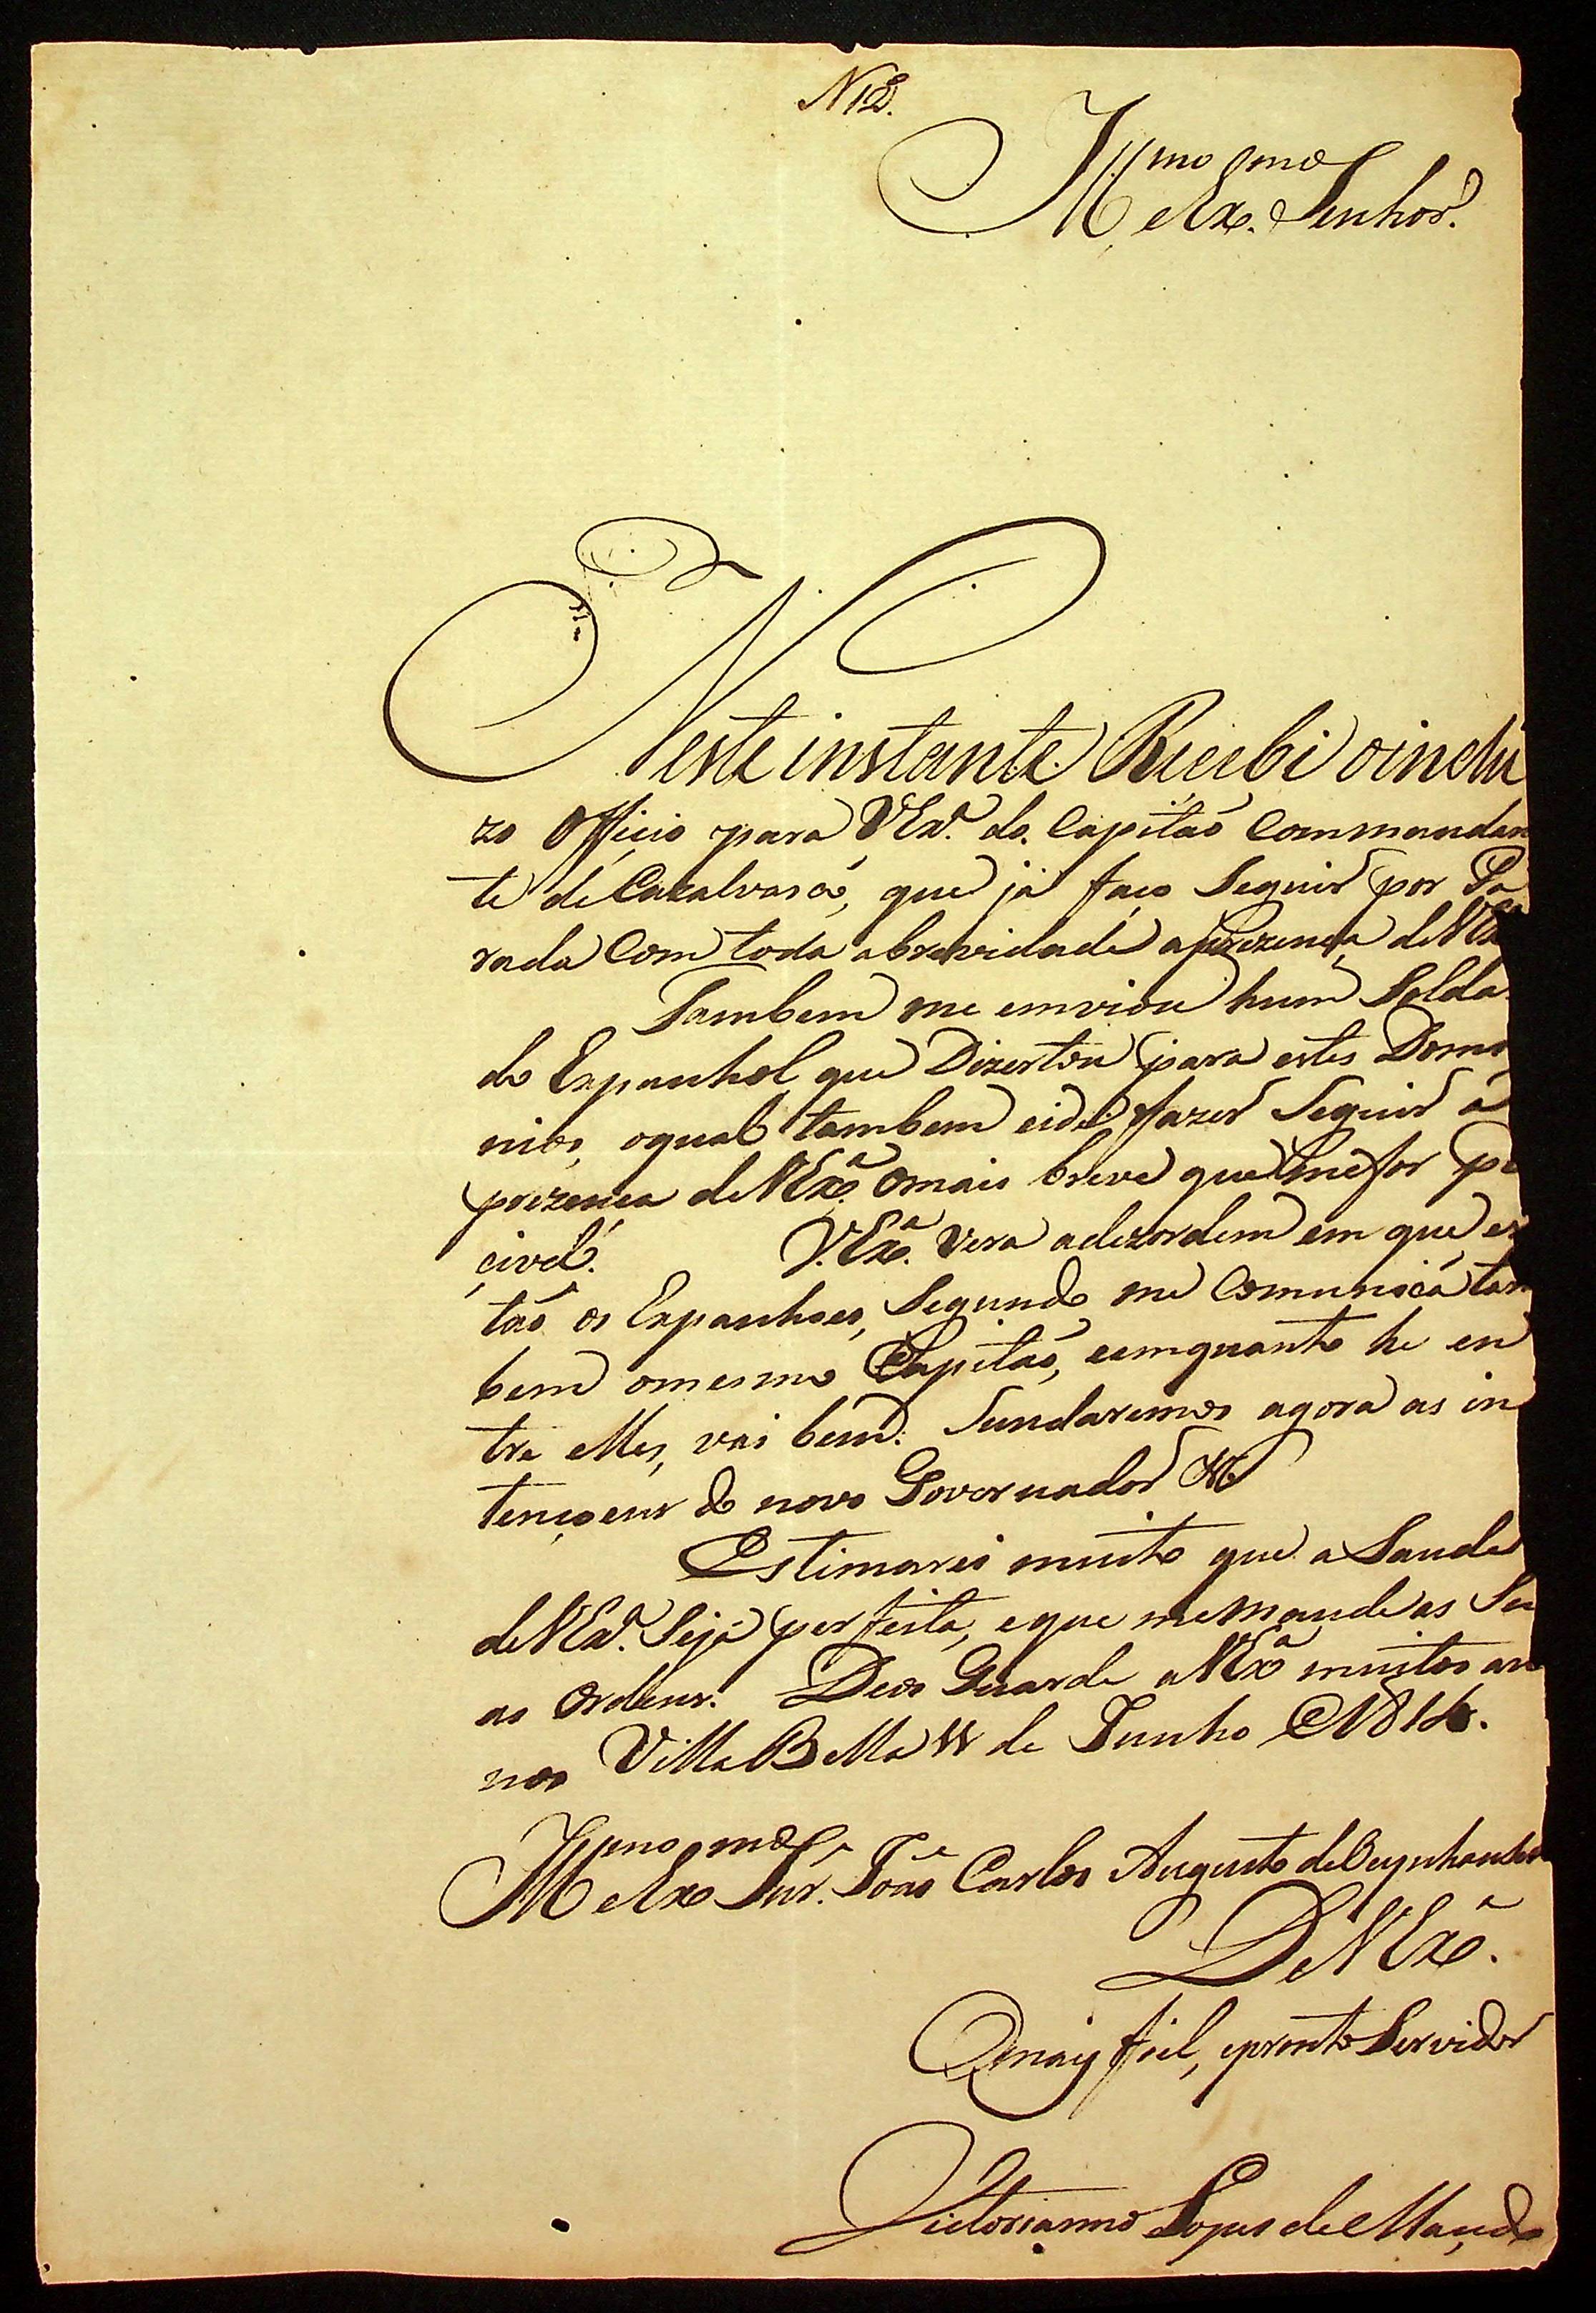 N 12.
Ill.mo e Ex.mo Senhor.
Neste instante Recebi o inclu
zo Officio para VEx.ª do Capitaõ Commandan
te de Cazalvasco, que já faço Seguir por Pa
rada Com toda abrevidade aprezença de VEx.ª
Tambem me emviou hum Solda
do Espanhol que Dizertou para estes Domi
nios, oqual tambem eide fazer Seguir á
prezença de VEx.ª omais breve que me for po
civel. V.Ex.ª vera adezordem em que es
taõ os Espanhoes, Segundo me Comunicá tam
bem omesmo Capitaõ, eemquanto he en
tre elles, vai bem. Sundaremos agora as in
tençoens do novo Governador
Estimarei muito que a Saude
de VEx.ª Seja perfeita, e que me Mande as Su
as Ordens. Deos Guarde a VEx.ª muitos an
nos Villa Bella 11 de Junho
Ill.mo e Ex.mo Snr. Joaõ Carlos Augusto de Oeynhausen
De VEx.ª
Omais fiel, epronto Servidor
Victorianno Lopes de Macedo